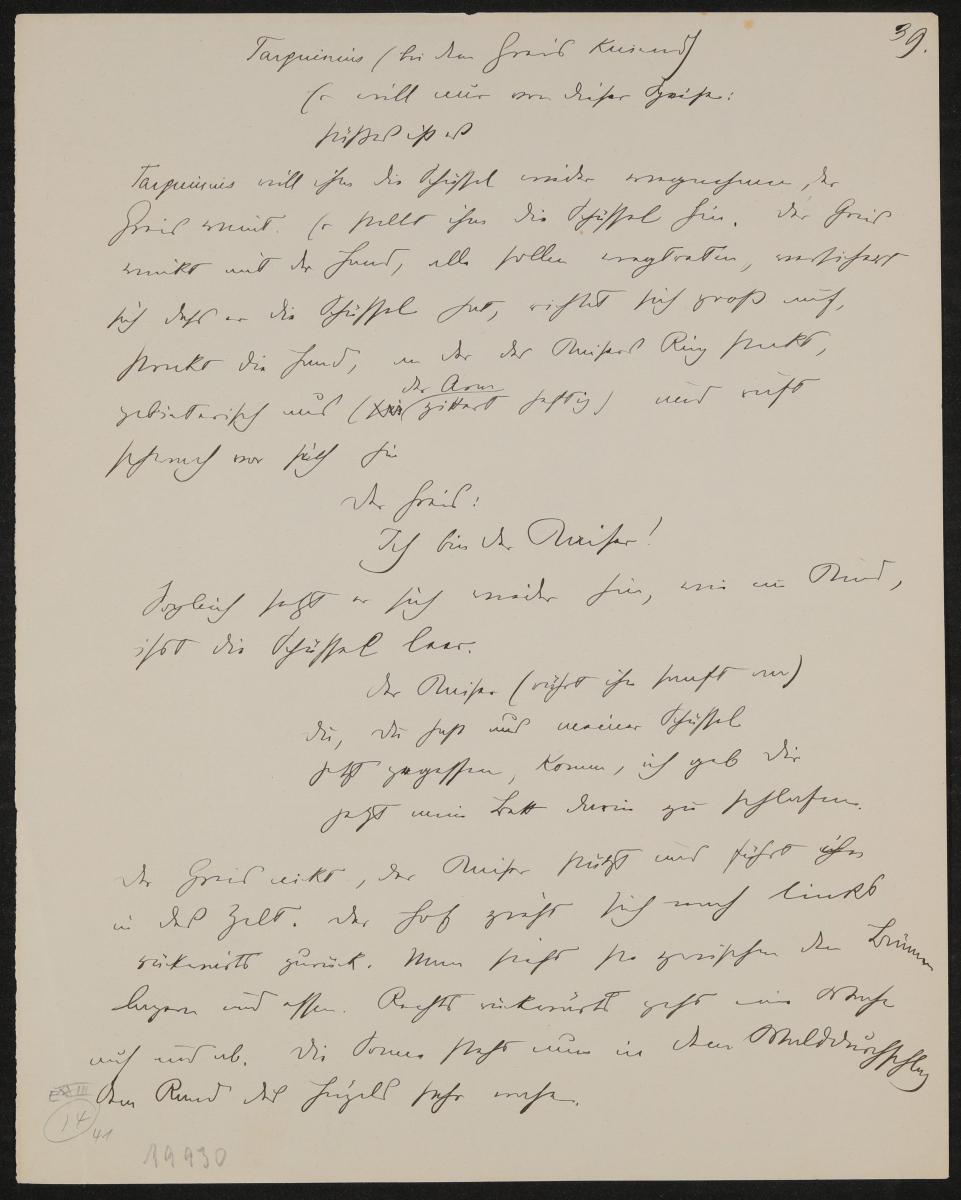 39.
Tarquinius (bei dem Greis kniend)
Er will nur von dieser Speise:
süsses isst er
Tarquinius will ihm die Schüssel wieder wegnehmen, der
Greis weint. Er stellt ihm die Schüssel hin. Der Greis
winkt mit der Hand, alle sollen wegtreten, versichert
sich dass er die Schüssel hat, richtet sich gross auf,
streckt die Hand, an der des Kaisers Ring steckt,
der Arm
gebieterisch aus ( zittert heftig) und ruft
schwach vor sich hin
Der Greis:
Ich bin der Kaiser!
Sogleich setzt er sich wieder hin, wie ein Kind,
isst die Schüssel leer.
Der Kaiser (rührt ihn sanft an)
Du, du hast aus meiner Schüssel
jetzt gegessen, komm, ich geb dir
jetzt mein Bett darin zu schlafen.
Der Greis nickt, der Kaiser stützt und führt ihn
in das Zelt. Der Hof zieht sich nach links
rückwärts zurück. Man sieht sie zwischen den Bäumen
lagern und essen. Rechts rückwärts geht eine Wache
auf und ab. Die Sonne steht nun in dem Walddurchschlag
dem Rand des Hügels sehr nahe.
14
41
19930